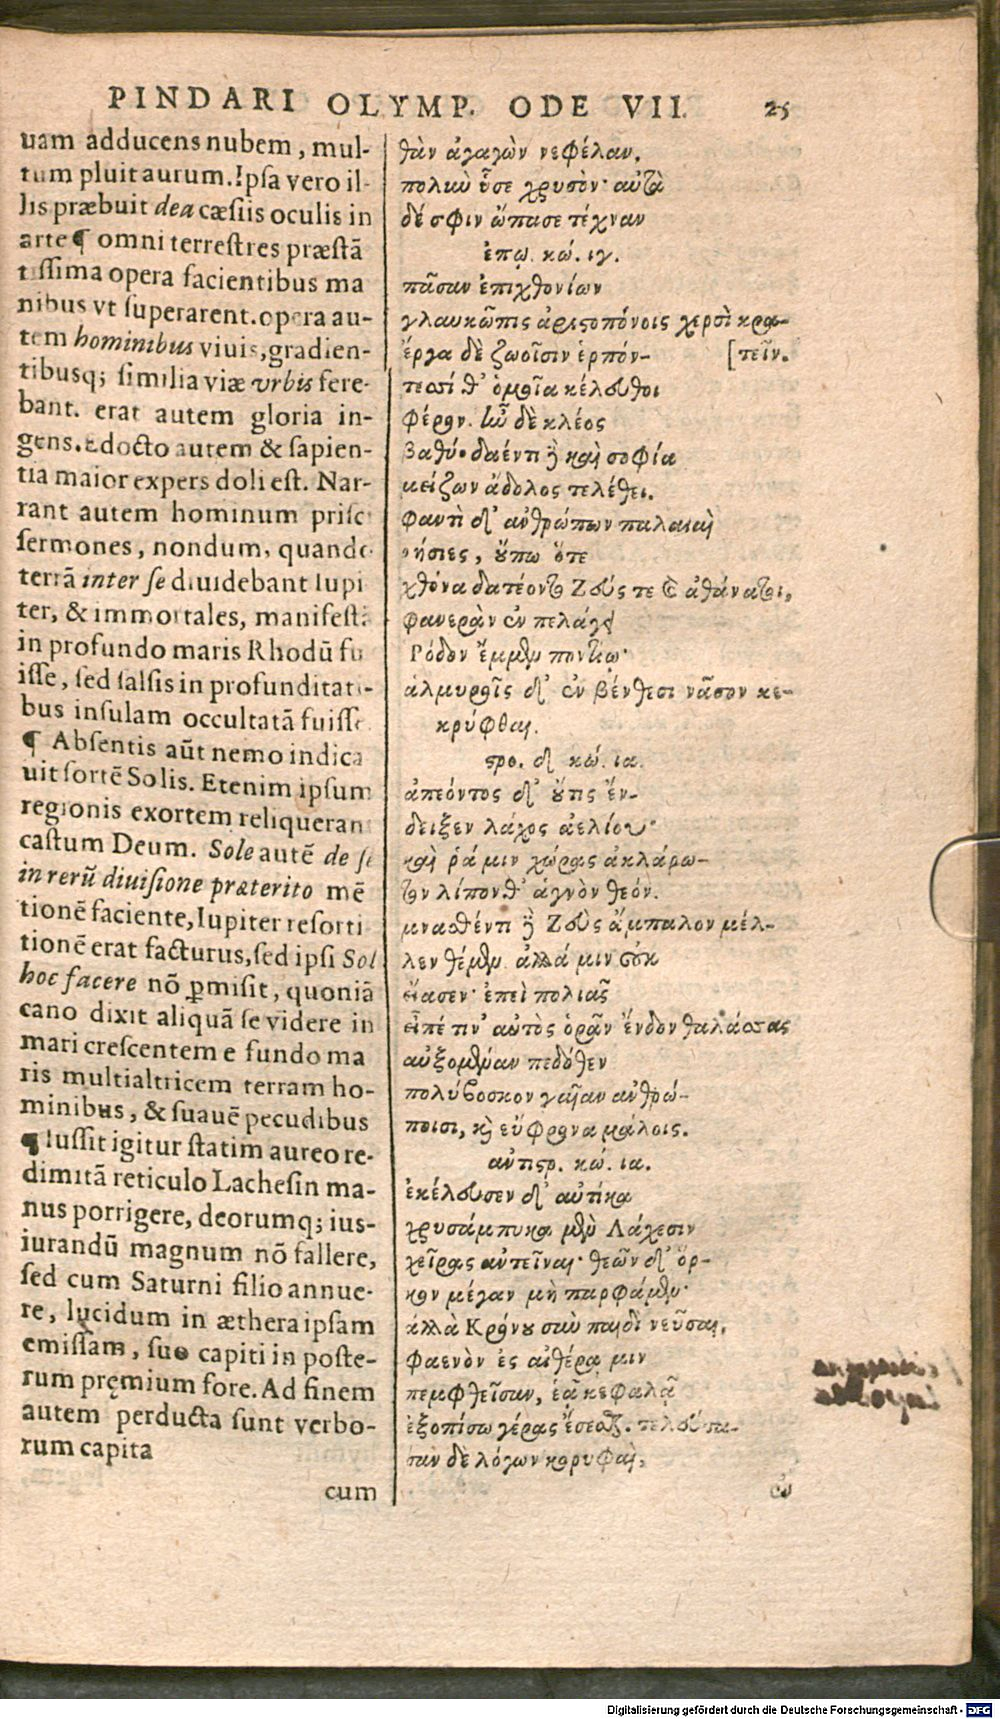 PINDARI OLYMP. ODE VII. 25
uam adducens nubem, mul-
tum pluit aurum. Ipsa vero il-
lis præbuit dea cæsiis oculis in
arte ¶ omni terrestres præstā
tissima opera facientibus ma
nibus vt superarent. opera au-
tem hominibus viuis, gradien-
tibusq; similia viæ vrbis fere-
bant. erat autem gloria in-
gens. Edocto autem & sapien-
tia maior expers doli est. Nar-
rant autem hominum prisc
sermones, nondum, quando
terrā inter se diuidebant Iupi
ter, & immortales, manifestā
in profundo maris Rhodū fu
isse, sed salsis in profunditati-
bus insulam occultatā fuisse
¶ Absentis aūt nemo indica
uit sortē Solis. Etenim ipsum
regionis exortem reliqueran
castum Deum. Sole autē de se
in rerū diuisione præterito mē
tionē faciente, Iupiter resorti
tionē erat facturus, sed ipsi Sol
hoc facere nō ꝑmisit, quoniā
cano dixit aliquā se videre in
mari crescentem e fundo ma
ris multialtricem terram ho-
minibus, & suauē pecudibus
¶ Iussit igitur statim aureo re-
dimitā reticulo Lachesin ma-
nus porrigere, deorumq; ius-
iurandū magnum nō fallere,
sed cum Saturni filio annue-
re, lucidum in æthera ipsam
emissam, suo capiti in poste-
rum pręmium fore. Ad finem
autem perducta sunt verbo-
rum capita
cum
θὰν ἀγαγὼν νεφέλαν,
πολὺν ὗσε χρυσὸν· αὐτὰ
δέ σφιν ὤπασε τέχναν
ἐπῳ. κώ. ιγ.
πᾶσαν ἐπιχθονίων
γλαυκῶπις ἀριστοπόνοις χερσὶ κρα-
ἔργα δὲ ζωοῖσιν ἑρπόν- [τεῖν.
τεσσί θ' ὁμοῖα κέλευθοι
φέρον. ἦν δὲ κλέος
βαθύ· δαέντι ϳ καὶ σοφία
μείζων ἄδολος τελέθει.
φαντὶ δ' ἀνθρώπων παλαιαὶ
ῥήσιες, οὔπω ὅτε
χθόνα δατέοντο Ζεύς τε καὶ ἀθάνατοι,
φανερὰν ἐν πελάγει
Ρόδον ἔμμεν ποντίῳ·
ἁλμυροῖς δ' ἐν βένθεσι νᾶσον κε-
κρύφθαι.
στρο. δ κώ. ια.
ἀπεόντος δ' οὔτις ἔν-
δειξεν λάχος ἀελίου·
καὶ ῥά μιν χώρας ἀκλάρω-
τον λίπονθ' ἁγνὸν θεόν.
μνασθέντι ϳ Ζεὺς ἄμπαλον μέλ-
λεν θέμεν. ἀλλά μιν οὐκ
εἴασεν· ἐπεὶ πολιᾶς
εἶπέ τιν' αὐτὸς ὁρᾶν ἔνδον θαλάσσας
αὐξομέναν πεδόθεν
πολύβοσκον γαῖαν ἀνθρώ-
ποισι, καὶ εὔφρονα μάλοις.
ἀντιστρ. κώ. ια.
ἐκέλευσεν δ' αὐτίκα
χρυσάμπυκα μὲν Λάχεσιν
χεῖρας ἀντεῖναι· θεῶν δ' ὅρ-
κον μέγαν μὴ παρφάμεν·
ἀλλὰ Κρόνου σὺν παιδὶ νεῦσαι,
φαενὸν ἐς αἰθέρα μιν
πεμφθεῖσαν, ἑᾷ κεφαλᾷ
ἐξοπίσω γέρας ἔσεσθαι. τελεύτα-
σαν δὲ λόγων κορυφαὶ,
ἐν
Digitalisierung gefördert durch die Deutsche Forschungsgemeinschaft - DFG